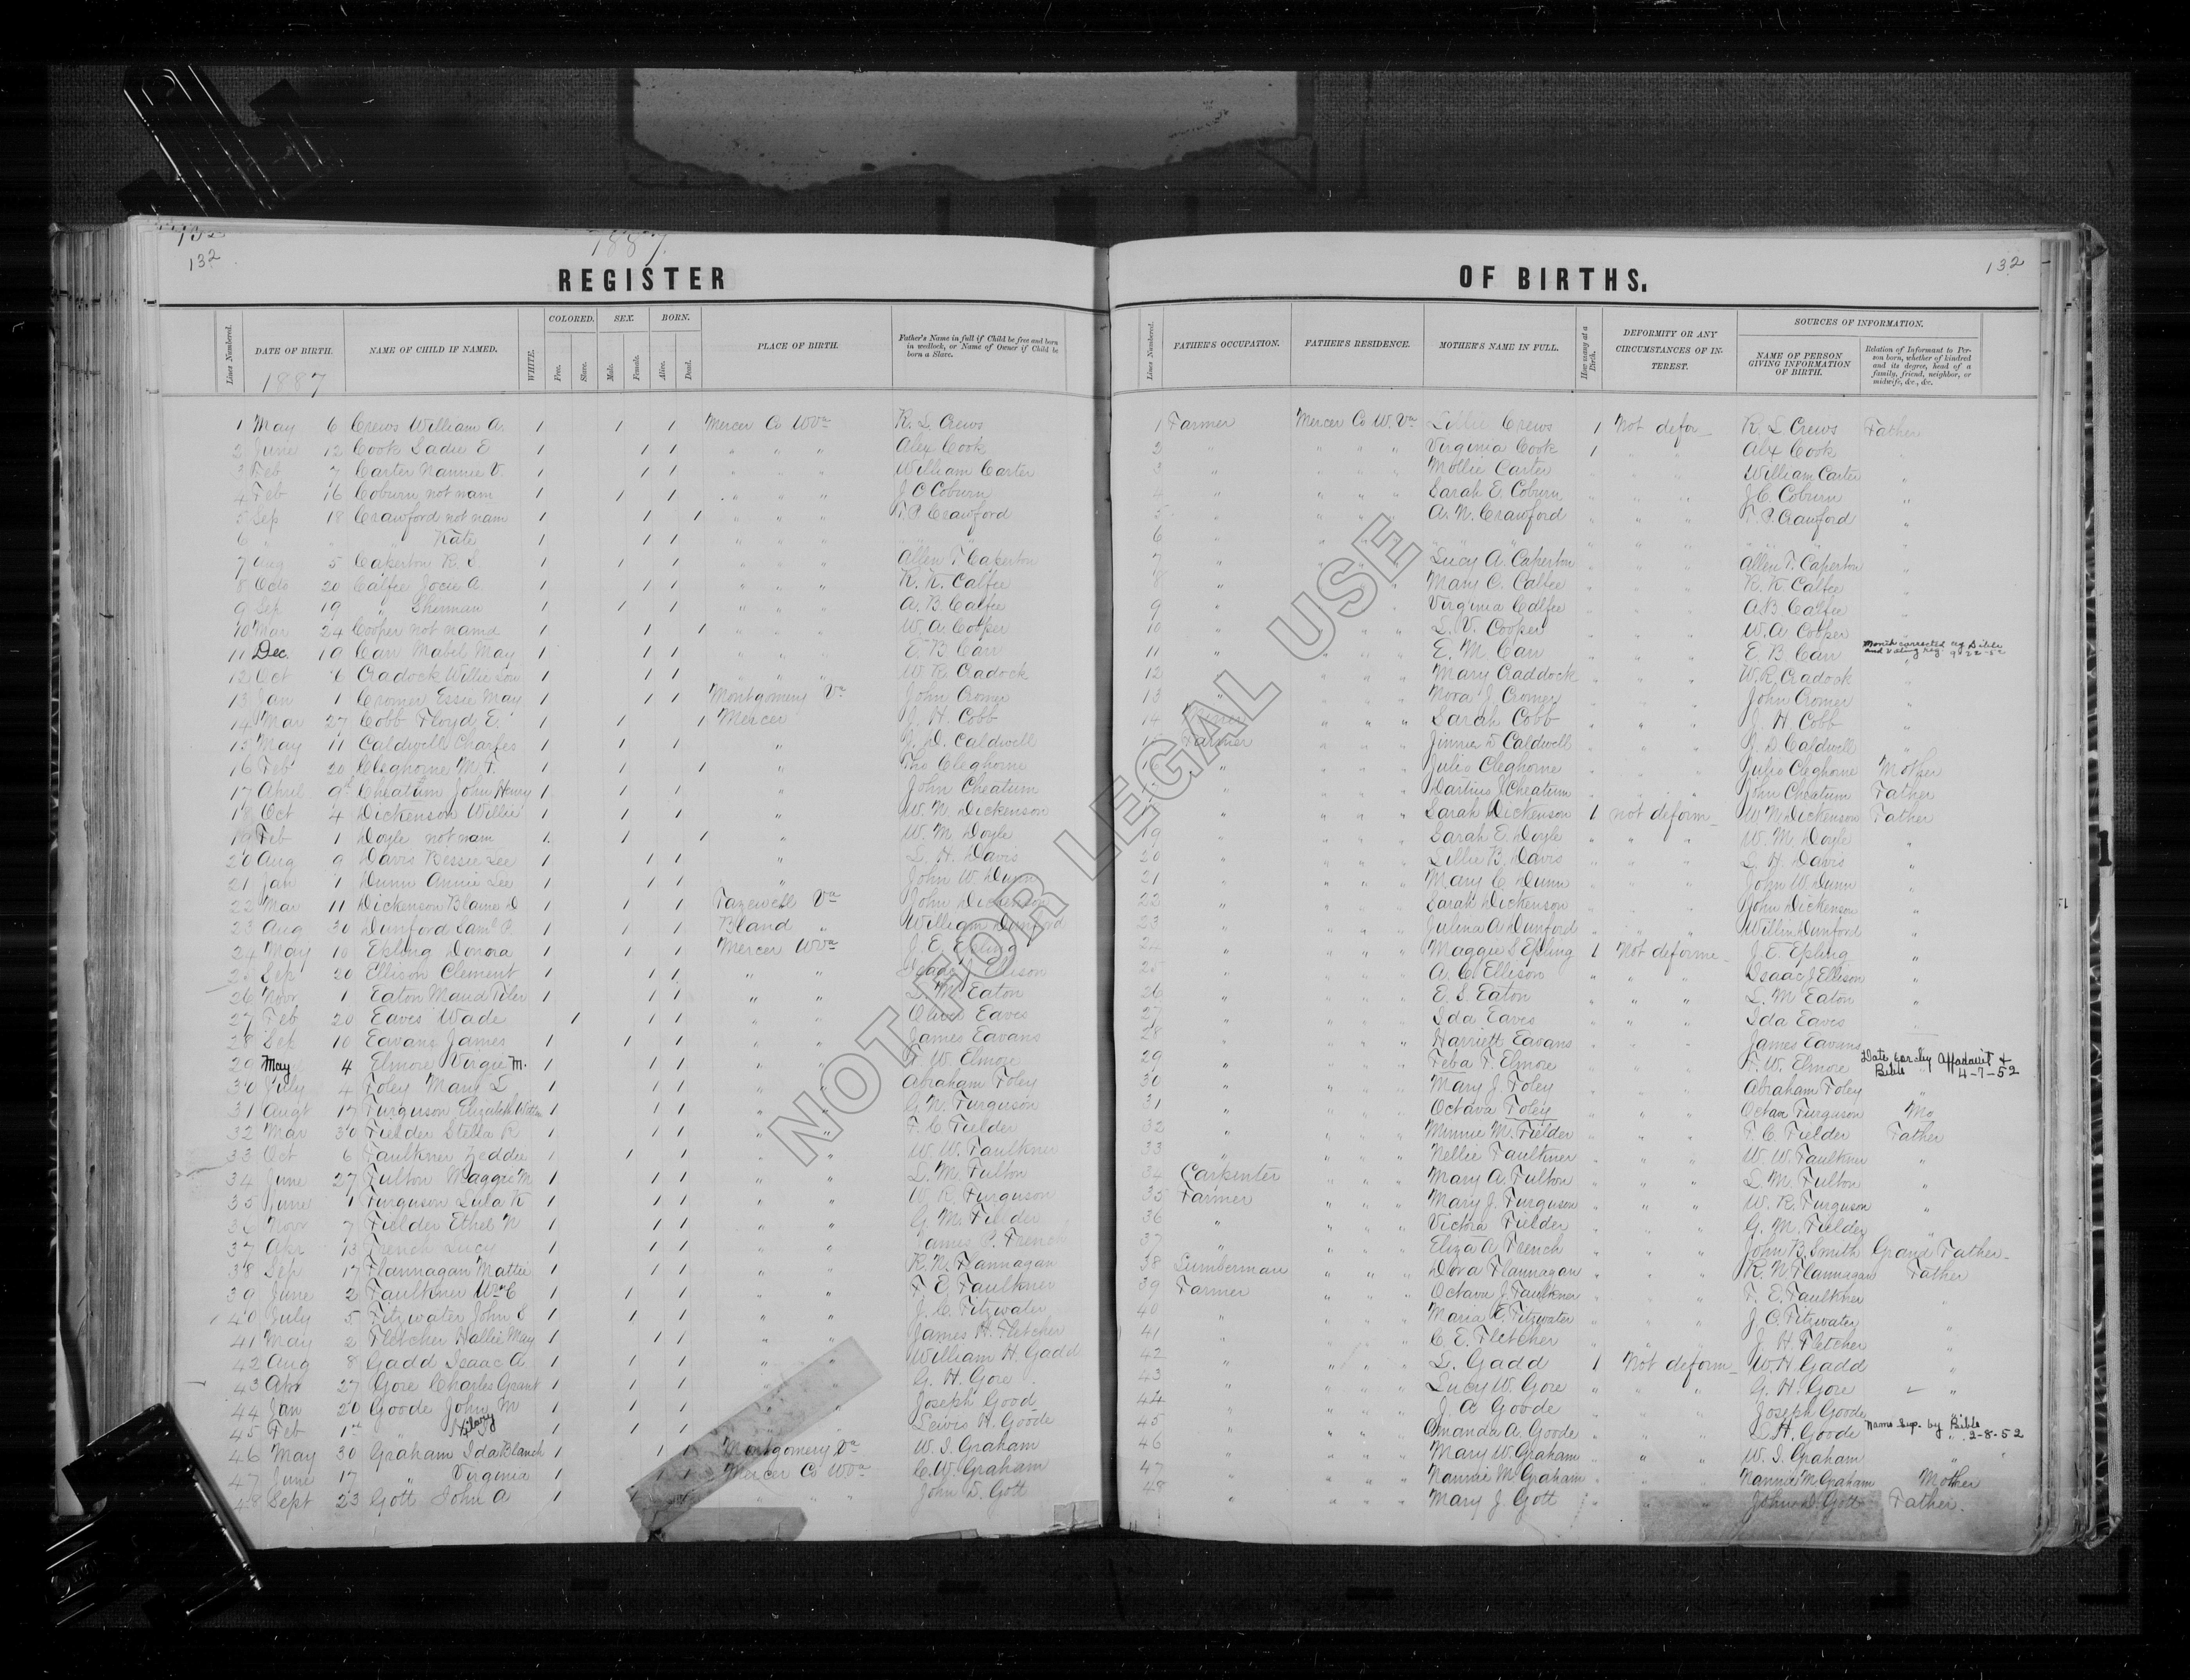 132
132
1887.
132
REGISTER OF BIRTHS.
Lines Numbered. DATE OF BIRTH. NAME OF CHILD IF NAMED. WHITE. COLORED. Free. Slave. SEX. Male. Female. BORN. Alive. Dead. PLACE OF BIRTH. Father's Name in full if Child be free and born in wedlock, or Name of Owner if Child be born a Slave. Lines Numbered. FATHER'S OCCUPATION. FATHER'S RESIDENCE. MOTHER'S NAME IN FULL. How many at a Birth. DEFORMITY OR ANY CIRCUMSTANCES OF INTEREST. SOURCES OF INFORMATION. NAME OF PERSON GIVING INFORMATION OF BIRTH. Relation of Informant to Person born, whether of kindred and its degree, head of a family, friend, neighbor, or midwife, &c., &c.
1887
1 May 6 Crews William A. 1 1 1 Mercer Co WVa R. L. Crews 1 Farmer Mercer Co W. Va Lillie Crews 1 Not defor R. L. Crews Father
2 June 12 Cook Sadie E 1 1 1 " " " Alex Cook 2 " " " " Virginia Cook 1 " " Alex Cook "
3 Feb 7 Carter Nannie V 1 1 1 " " " William Carter 3 " " " " Mollie Carter " " " William Carter "
4 Feb 16 Coburn not nam 1 1 1 " " " J C Coburn 4 " " " " Sarah E. Coburn " " " J. C. Coburn "
5 Sep 18 Crawford not nam 1 1 1 " " " T. P. Crawford 5 " " " " A. N. Crawford " " " T. P. Crawford "
6 " " " Kate 1 1 1 " " " " " " 6 " " " " " " " " " " " " " "
7 Aug 5 Caperton R. L. 1 1 1 " " " Allen T Caperton 7 " " " " Lucy A. Caperton " " " Allen T. Caperton "
8 Oct 20 Calfee Jocie A. 1 1 1 " " " R. K. Calfee 8 " " " " Mary C. Calfee " " " R. K. Calfee "
9 Sep 19 " Sherman 1 1 1 " " " A. B. Calfee 9 " " " " Virginia Calfee " " " A B Calfee "
10 Mar 24 Cooper not namd 1 1 1 " " " W. A. Cooper 10 " " " " L. V. Cooper " " " W. A Cooper "
11 Dec. 19 Carr Mabel May 1 1 1 " " " E. B Carr 11 " " " " E. M. Carr " " " E. B. Carr Month corrected
12 Oct 6 Cradock Willie Lou 1 1 1 " " " W. R. Cradock 12 " " " " Mary Craddock " " " W. R. Cradock "
13 Jan 1 Cromer Essie May 1 1 1 Montgomery Va John Cromer 13 " " " " Nora J Cromer " " " John Cromer "
14 Mar 27 Cobb Floyd E. 1 1 1 Mercer J. H. Cobb 14 " " " Sarah Cobb " " " J. H Cobb "
15 May 11 Caldwell Charles 1 1 1 " D. Caldwell 15 Farmer " " " Jinnie D Caldwell " " " D Caldwell "
16 Feb 20 Cleghorne M. T. 1 1 1 " Tho Cleghorne " " " " Julia Cleghorne " " " Julia Cleghorne Mother
17 April 9th Cheatum John Henry 1 1 1 " John Cheatum " " " " J Cheatum " " " John Cheatum Father
18 Oct 4 Dickenson Willie 1 1 1 " W. N. Dickenson " " " " Sarah Dickenson 1 not deform W N Dickenson Father
19 Feb 1 Doyle not nam 1 1 1 " W. M. Doyle 19 " " " " Sarah E. Doyle " " " W. M. Doyle "
20 Aug 9 Davis Bessie Lee 1 1 1 " L. H. Davis 20 " " " " Lillie B. Davis " " " L. H Davis "
21 Jan 1 Dunn Annie Lee 1 1 1 " John W. Dunn 21 " " " " Mary C Dunn " " " John W. Dunn "
22 Mar 11 Dickenson Blaine D 1 1 1 Tazewell Va John Dickenson 22 " " " " Sarah Dickenson " " " John Dickenson "
23 Aug 30 Dunford Saml P. 1 1 1 Bland " William Dunford 23 " " " " Julina A Dunford " " " Dunford "
24 May 10 Epling Donora 1 1 1 Mercer WVa J. E. Epling 24 " " " " Maggie S Epling 1 Not deforme J. E. Epling "
25 Sep 20 Ellison Clement 1 1 1 " " Isaac J Ellison 25 " " " " A. C. Ellison " " " Isaac J Ellison "
26 Novr 1 Eaton Maud 1 1 1 " " L. M. Eaton 26 " " " " E. S. Eaton " " " L. M Eaton "
27 Feb 20 Eaves Wade 1 1 1 " " Oliver Eaves 27 " " " " Ida Eaves " " " Ida Eaves "
28 Sep 10 Eavans James 1 1 1 " " James Eavans 28 " " " " Harriett Eavans " " " James Eavans
29 May 4 Elmore Virgie M. 1 1 1 " " F. W. Elmore 29 " " " " Feba F. Elmore " " " F. W. Elmore Date cor. by Affadavit & Bible 4-7-52
30 July 4 Foley Mary L 1 1 1 " " Abraham Foley 30 " " " " Mary J. Foley " " " Abraham Foley "
31 Augt 17 Furguson Elizabeth 1 1 1 " " G. W. Furguson 31 " " " " Octava Foley " " " Octava Furguson Mo
32 Mar 30 Fielder Stella R 1 1 1 " " F. C. Fielder 32 " " " " Minnie M. Fielder " " " F. C. Fielder Father
33 Oct 6 Faulkner Zeddie 1 1 1 " " W. W. Faulkner 33 " " " " Nellie Faulkner " " " W. W. Faulkner "
34 June 27 Fulton Maggie M 1 1 1 " " L. M. Fulton 34 Carpenter " " " Mary A. Fulton " " " L. M. Fulton "
35 June 1 Furguson Lula K 1 1 1 " " W. R. Furguson 35 Farmer " " " Mary J. Furguson " " " W. R. Furguson "
36 Novr 7 Fielder Ethel N 1 1 1 " " G. M. Fielder 36 " " " " Victora Fielder " " " G. M. Fielder "
37 Apr 13 French Lucy 1 1 1 " " James P. French 37 " " " " Eliza A French " " " John B. Smith Grand Father
38 Sep 17 Flannagan Mattie 1 1 1 " " R. N. Flannagan 38 Lumberman " " " Dora Flannagan " " " R. N Flannagan Father
39 June 2 Faulkner Wm C 1 1 1 " " F. E. Faulkner 39 Farmer " " " Octava J. Faulkner " " " F. E. Faulkner "
40 July 5 Fitzwater John S 1 1 1 " " J. C. Fitzwater 40 " " " " Maria E. Fitzwater " " " J. C. Fitzwater "
41 May 2 Fletcher Hallie May 1 1 1 " " James H. Fletcher 41 " " " " C. E. Fletcher " " " J. H. Fletcher "
42 Aug 8 Gadd Isaac A 1 1 1 " " William H. Gadd 42 " " " " L. Gadd 1 Not deform W. H. Gadd "
43 Apr 27 Gore Charles Grant 1 1 1 " " G. H. Gore 43 " " " " Lucy W. Gore " " " G. H. Gore "
44 Jan 20 Goode John M 1 1 1 " " Joseph Good 44 " " " " J. A Goode " " " Joseph Goode "
45 Feb 1st " Hilary 1 1 1 " " Lewis H. Goode 45 " " " " Amanda A. Goode " " " L. H. Goode Name sup. by Bible 2-8-52
46 May 30 Graham Ida Blanch 1 1 1 Montgomery Va W. I. Graham 46 " " " " Mary W. Graham " " " W. I. Graham "
47 June 17 " Virginia 1 1 1 Mercer Co WVa C. W. Graham 47 " " " " Nannie M. Graham " " " Nannie M. Graham Mother
48 Sept 23 Gott John A 1 1 1 " " " John D. Gott 48 " " " " Mary J. Gott " " " John D. Gott Father.
NOT FOR LEGAL USE